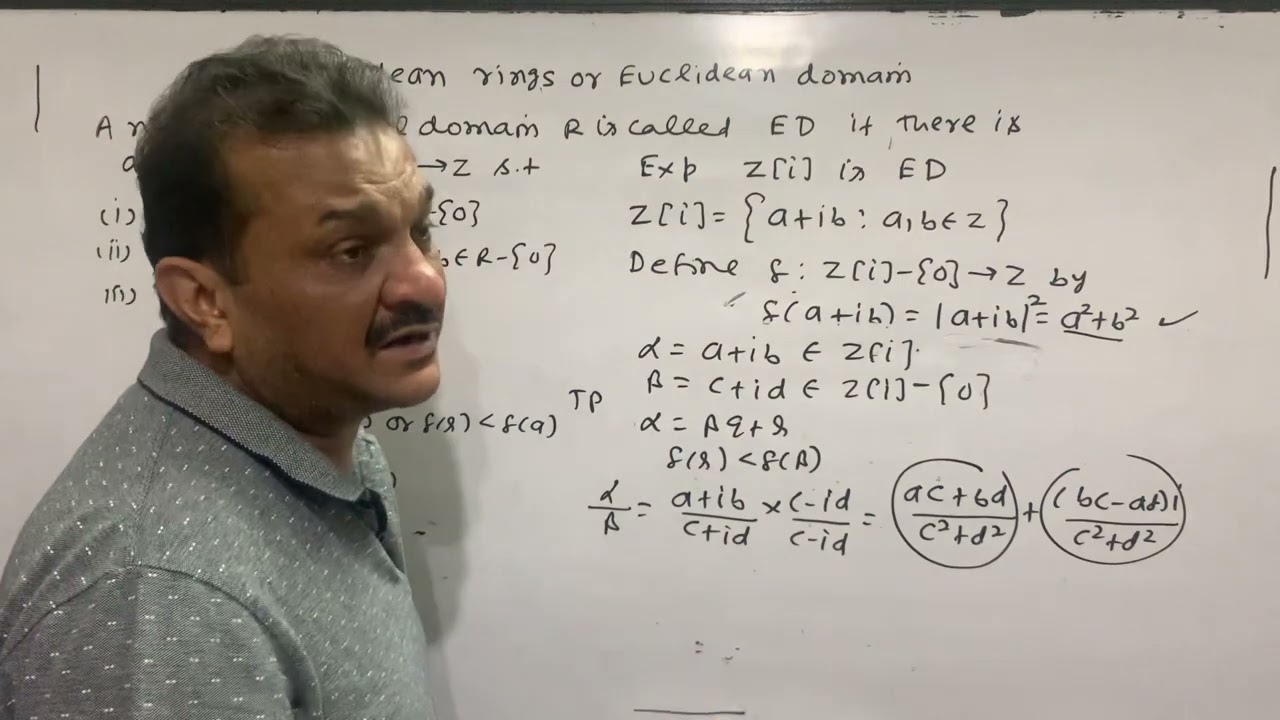 rings or Euclidean domain
A domain R is called ED if there is
→ Z s.t
(i) -{0}
(ii) b ∈ R-{0}
(iii)
or f(r) < f(a)
Exp Z[i] is ED
Z[i] = {a+ib : a,b ∈ Z}
Define f : Z[i]-{0} → Z by
f(a+ib) = |a+ib|² = a²+b² ✓
α = a+ib ∈ Z[i].
β = c+id ∈ Z[i]-{0}
TP α = βq+r
f(r) < f(β)
α/β = (a+ib)/(c+id) × (c-id)/(c-id) = (ac+bd)/(c²+d²) + (bc-ad)i/(c²+d²)